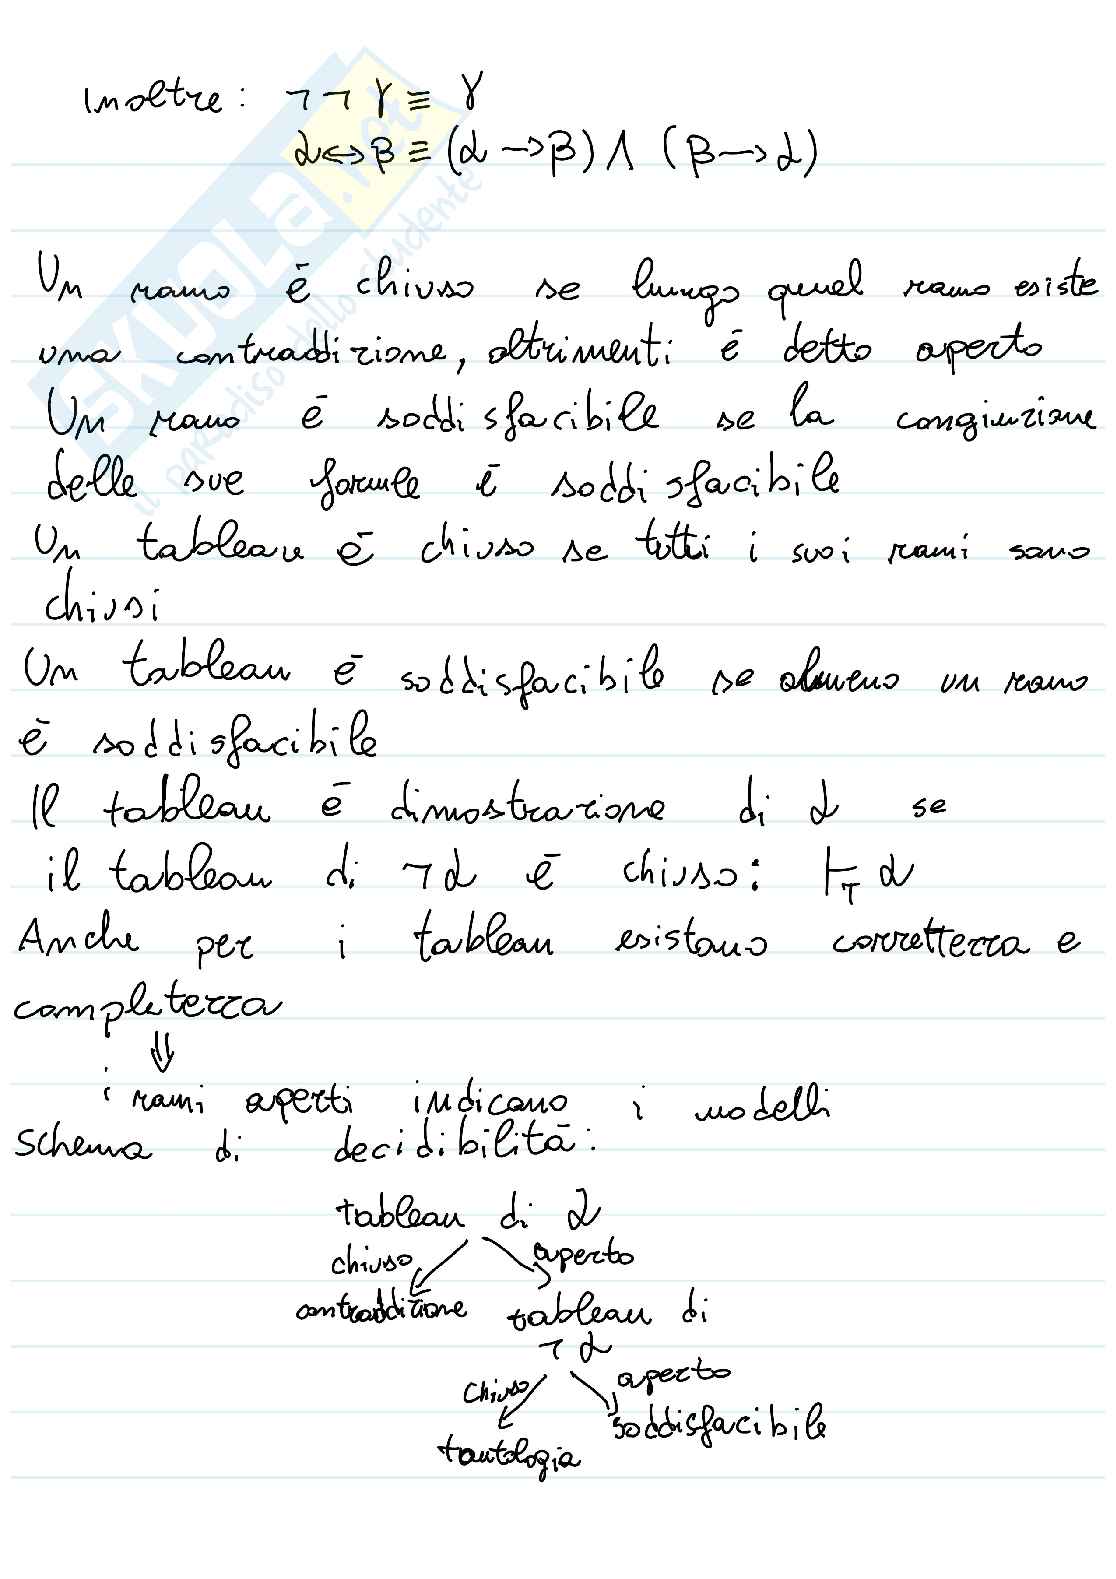 Inoltre: ¬ ¬ γ ≡ γ
α ↔ β ≡ (α → β) ∧ (β → α)
SKUOLA.net
il paradiso dello studente
Un ramo è chiuso se lungo quel ramo esiste
una contraddizione, altrimenti è detto aperto
Un ramo è soddisfacibile se la congiunzione
delle sue formule è soddisfacibile
Un tableau è chiuso se tutti i suoi rami sono
chiusi
Un tableau è soddisfacibile se almeno un ramo
è soddisfacibile
Il tableau è dimostrazione di α se
il tableau di ¬α è chiuso: ⊢T α
Anche per i tableau esistono correttezza e
completezza
⇓
i rami aperti indicano i modelli
Schema di decidibilità:
tableau di α
chiuso aperto
contraddizione tableau di
¬ α
chiuso aperto
tautologia soddisfacibile